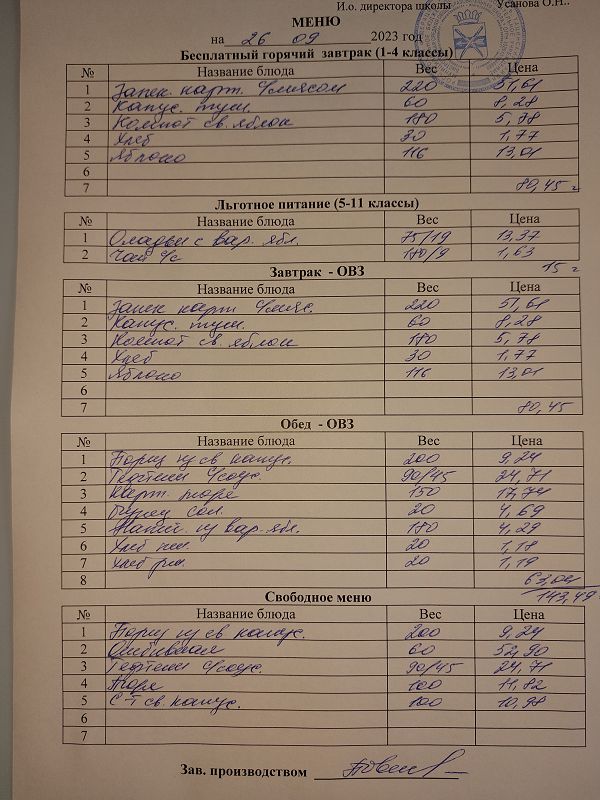 И.о. директора школы Усанова О.Н..
МЕНЮ
на 26 09 2023 год
Бесплатный горячий завтрак (1-4 классы)
№ Название блюда Вес Цена
1 Запек. карт. с/мясом 220 51,61
2 Капус. туш. 60 8,28
3 Компот св. яблок 180 5,78
4 Хлеб 30 1,77
5 Яблоко 116 13,01
6
7 80,45
Льготное питание (5-11 классы)
№ Название блюда Вес Цена
1 Оладьи с вар. ябл. 75/19 13,37
2 Чай с/с 180/9 1,63
15
Завтрак - ОВЗ
№ Название блюда Вес Цена
1 Запек карт с/мяс. 220 51,61
2 Капус. туш. 60 8,28
3 Компот св. яблок 180 5,78
4 Хлеб 30 1,77
5 Яблоко 116 13,01
6
7 80,45
Обед - ОВЗ
№ Название блюда Вес Цена
1 Борщ из св капус. 200 9,24
2 Тефтели с/соус. 90/45 24,71
3 Карт. пюре 150 17,74
4 Огурец сол. 20 4,69
5 Напит. из вар. ябл. 180 4,29
6 Хлеб пш. 20 1,18
7 Хлеб рж. 20 1,19
8 63,04
143,49
Свободное меню
№ Название блюда Вес Цена
1 Борщ из св капус. 200 9,24
2 Отбивная 60 52,90
3 Тефтели с/соус. 90/45 24,71
4 Пюре 100 11,82
5 С-т св. капус. 100 10,98
6
7
Зав. производством